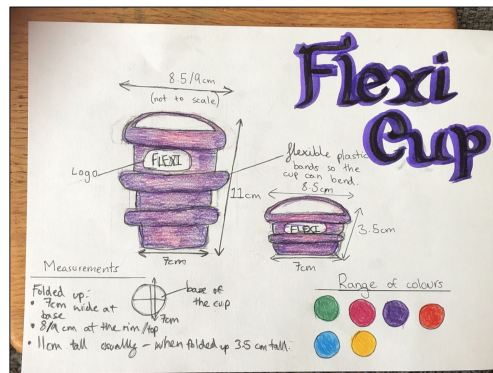 Flexi
Cup
8.5/9cm
(not to scale)
FLEXI
Logo
flexible plastic
bands so the
cup can bend.
11cm
7cm
8.5cm
FLEXI
3.5cm
7cm
Measurements
Folded up:
• 7cm wide at
base
• 8/9 cm at the rim/top
• 11cm tall usually - when folded up 3.5 cm tall.
base of
the cup
7cm
Range of colours